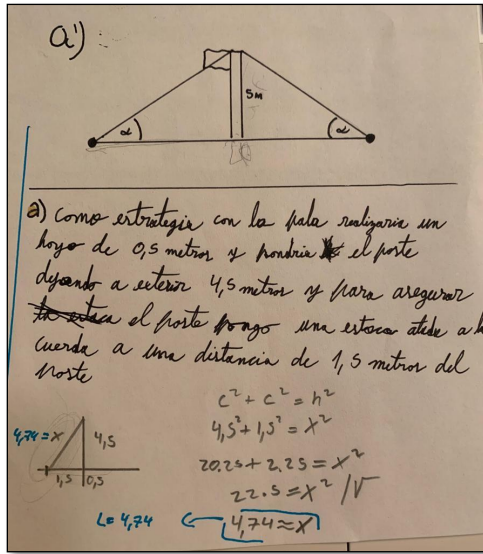 a')
5M
α
α
a) Como estrategia con la pala realizaria un
hoyo de 0,5 metros y pondria el poste
dejando a exterior 4,5 metros y para asegurar
el poste pongo una estaca atada a la
cuerda a una distancia de 1,5 metros del
poste
c² + c² = h²
4,5² + 1,5² = x²
20.25 + 2.25 = x²
22.5 = x² /√
4,74 ≈ x
L = 4,74
4,74 = x
4,5
1,5
0,5